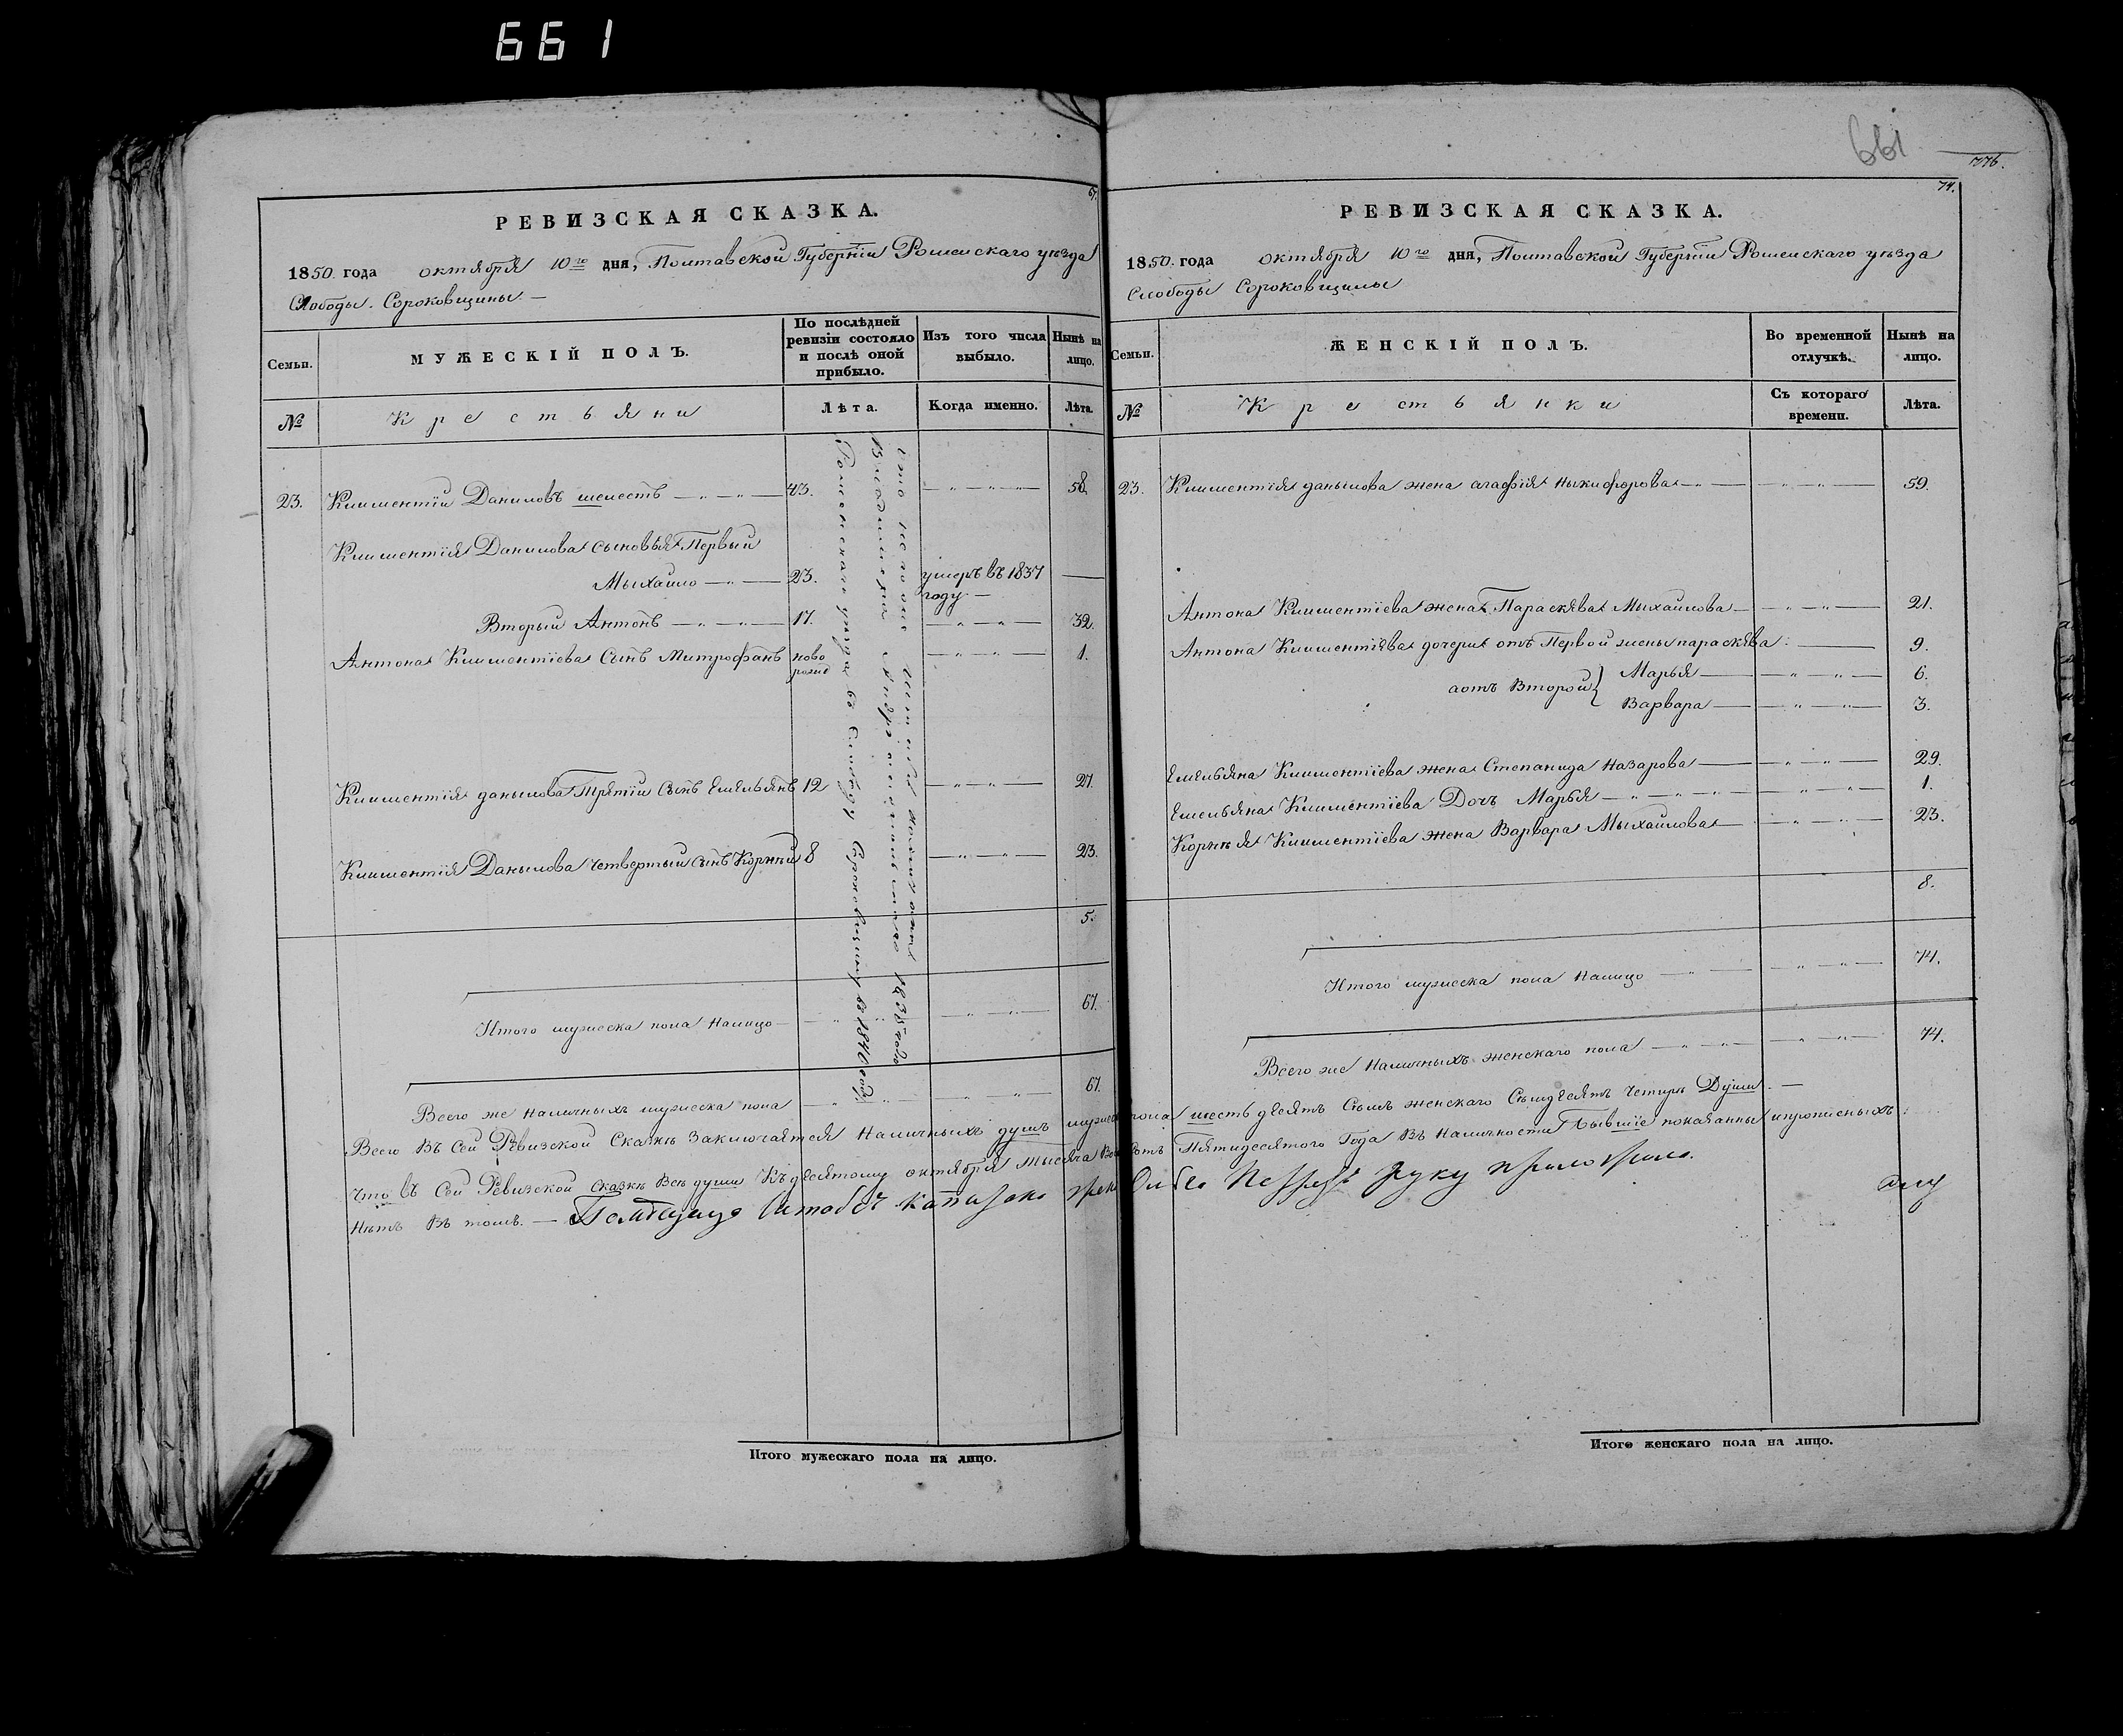 661
67.
РЕВИЗСКАЯ СКАЗКА.
1850. года октября 10го дня, Полтавской Губерніи Роменскаго уѣзда
Слободы. Сороковщины. —
Семьи.
МУЖЕСКІЙ ПОЛЪ.
По послѣдней ревизіи состояло и послѣ оной прибыло.
Изъ того числа выбыло.
Нынѣ на лицо.
№
Крестьяни
Лѣта.
Когда именно.
Лѣта.
23. Климентій Даниловъ шелестъ — 43. — 58.
Климентія Данилова сыновья Первый
Мыхайло — 23. умеръ въ 1837 —
году. —
Вторый Антонъ — 17. — 32.
Антона Климентіева Сынъ Митрофанъ ново — 1.
рожд
Климентія данылова Третіи Сынъ Емельянъ 12 — 27.
Климентія Данылова четвертый сынъ Корнѣй 8 — 23.
5.
Итого мужеска пола Налицо — 67.
Всего же Наличныхъ мужеска пола — 67.
Роменскаго уѣзда въ Слободу Сороковщину въ 1840 году
661
776.
74.
РЕВИЗСКАЯ СКАЗКА.
1850. года октября 10го дня, Полтавской Губерніи Роменскаго уѣзда
Слободы Сороковщины
Семьи.
ЖЕНСКІЙ ПОЛЪ.
Во временной отлучкѣ.
Нынѣ на лицо.
№
Крестьянки
Съ котораго времени.
Лѣта.
23. Климентія данылова жена агафія Ныкифорова — 59.
Антона Климентіева жена Параскява Мыхайлова — 21.
Антона Климентіева дочери отъ Первой жены параскява — 9.
аотъ Второй } Марья — 6.
Варвара — 3.
Емельяна Климентіева жена Степанида Назарова — 29.
Емельяна Климентіева Дочъ Марья — 1.
Корнѣя Климентіева жена Варвара Мыхайлова — 23.
8.
Итого мужеска пола Налицо — 74.
Всего же Наличныхъ женскаго пола — 74.
Всего Въ Сей Ревизской Сказкѣ Заключается Наличныхъ душъ мужеска пола шесть десятъ Семъ женскаго Семдесятъ Четыри Души. —
Что въ Сей Ревизской Сказкѣ Всѣ души Къ десятому октября тысяча Пятидесятого Года Въ Наличности Бывшіе показанны
Нѣтъ Въ томъ. — руку приложила.
Итого мужескаго пола на лицо.
Итого женскаго пола на лицо.